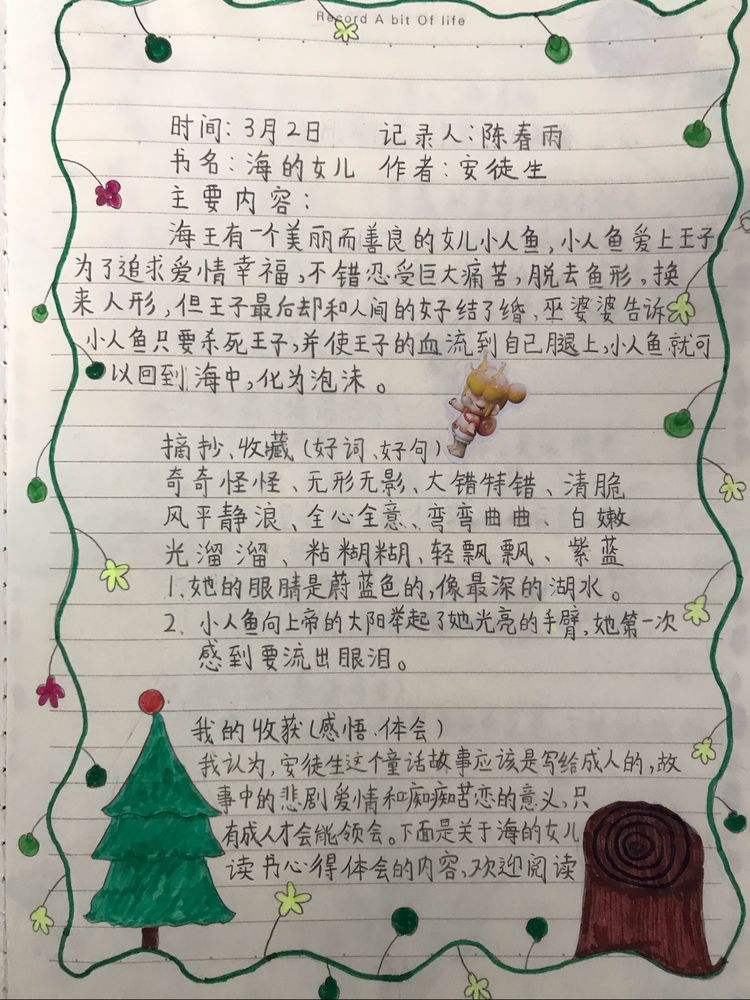 Record A bit Of life
时间：3月2日 记录人：陈春雨
书名：海的女儿 作者：安徒生
主要内容：
海王有一个美丽而善良的女儿小人鱼，小人鱼爱上王子
为了追求爱情幸福，不错忍受巨大痛苦，脱去鱼形，换
来人形，但王子最后却和人间的女子结了婚，巫婆婆告诉
小人鱼只要杀死王子，并使王子的血流到自己腿上，小人鱼就可
以回到海中，化为泡沫。
摘抄、收藏（好词、好句）
奇奇怪怪、无形无影、大错特错、清脆
风平静浪、全心全意、弯弯曲曲、白嫩
光溜溜、粘糊糊、轻飘飘、紫蓝
1.她的眼睛是蔚蓝色的，像最深的湖水。
2.小人鱼向上帝的太阳举起了她光亮的手臂，她第一次
感到要流出眼泪。
我的收获（感悟、体会）
我认为，安徒生这个童话故事应该是写给成人的，故
事中的悲剧爱情和痴痴苦恋的意义，只
有成人才会能领会。下面是关于海的女儿
读书心得体会的内容，欢迎阅读